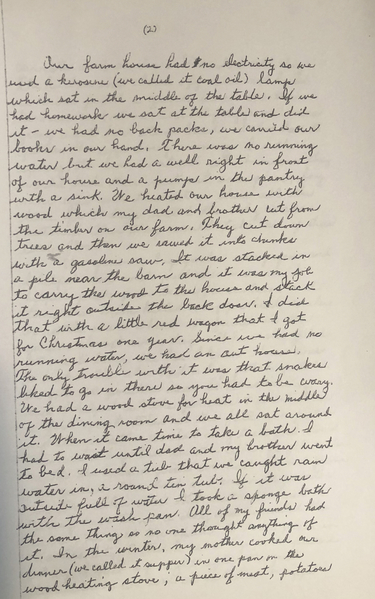 (2)
Our farm house had no electricity so we
used a kerosene (we called it coal oil) lamp
which sat in the middle of the table. If we
had homework we sat at the table and did
it - we had no back packs, we carried our
books in our hand. There was no running
water but we had a well right in front
of our house and a pump in the pantry
with a sink. We heated our house with
wood which my dad and brother cut from
the timber on our farm. They cut down
trees and then we sawed it into chunks
with a gasoline saw. It was stacked in
a pile near the barn and it was my job
to carry the wood to the house and stack
it right outside the back door. I did
that with a little red wagon that I got
for Christmas one year. Since we had no
running water, we had an out house.
The only trouble with it was that snakes
liked to go in there so you had to be wary.
We had a wood stove for heat in the middle
of the dining room and we all sat around
it. When it came time to take a bath I
had to wait until dad and my brother went
to bed. I used a tub that we caught rain
water in, a round tin tub. If it was
outside full of water I took a sponge bath
with the wash pan. All of my friends had
the same thing so no one thought anything of
it. In the winter, my mother cooked our
dinner (we called it supper) in one pan on the
wood heating stove; a piece of meat, potatoes